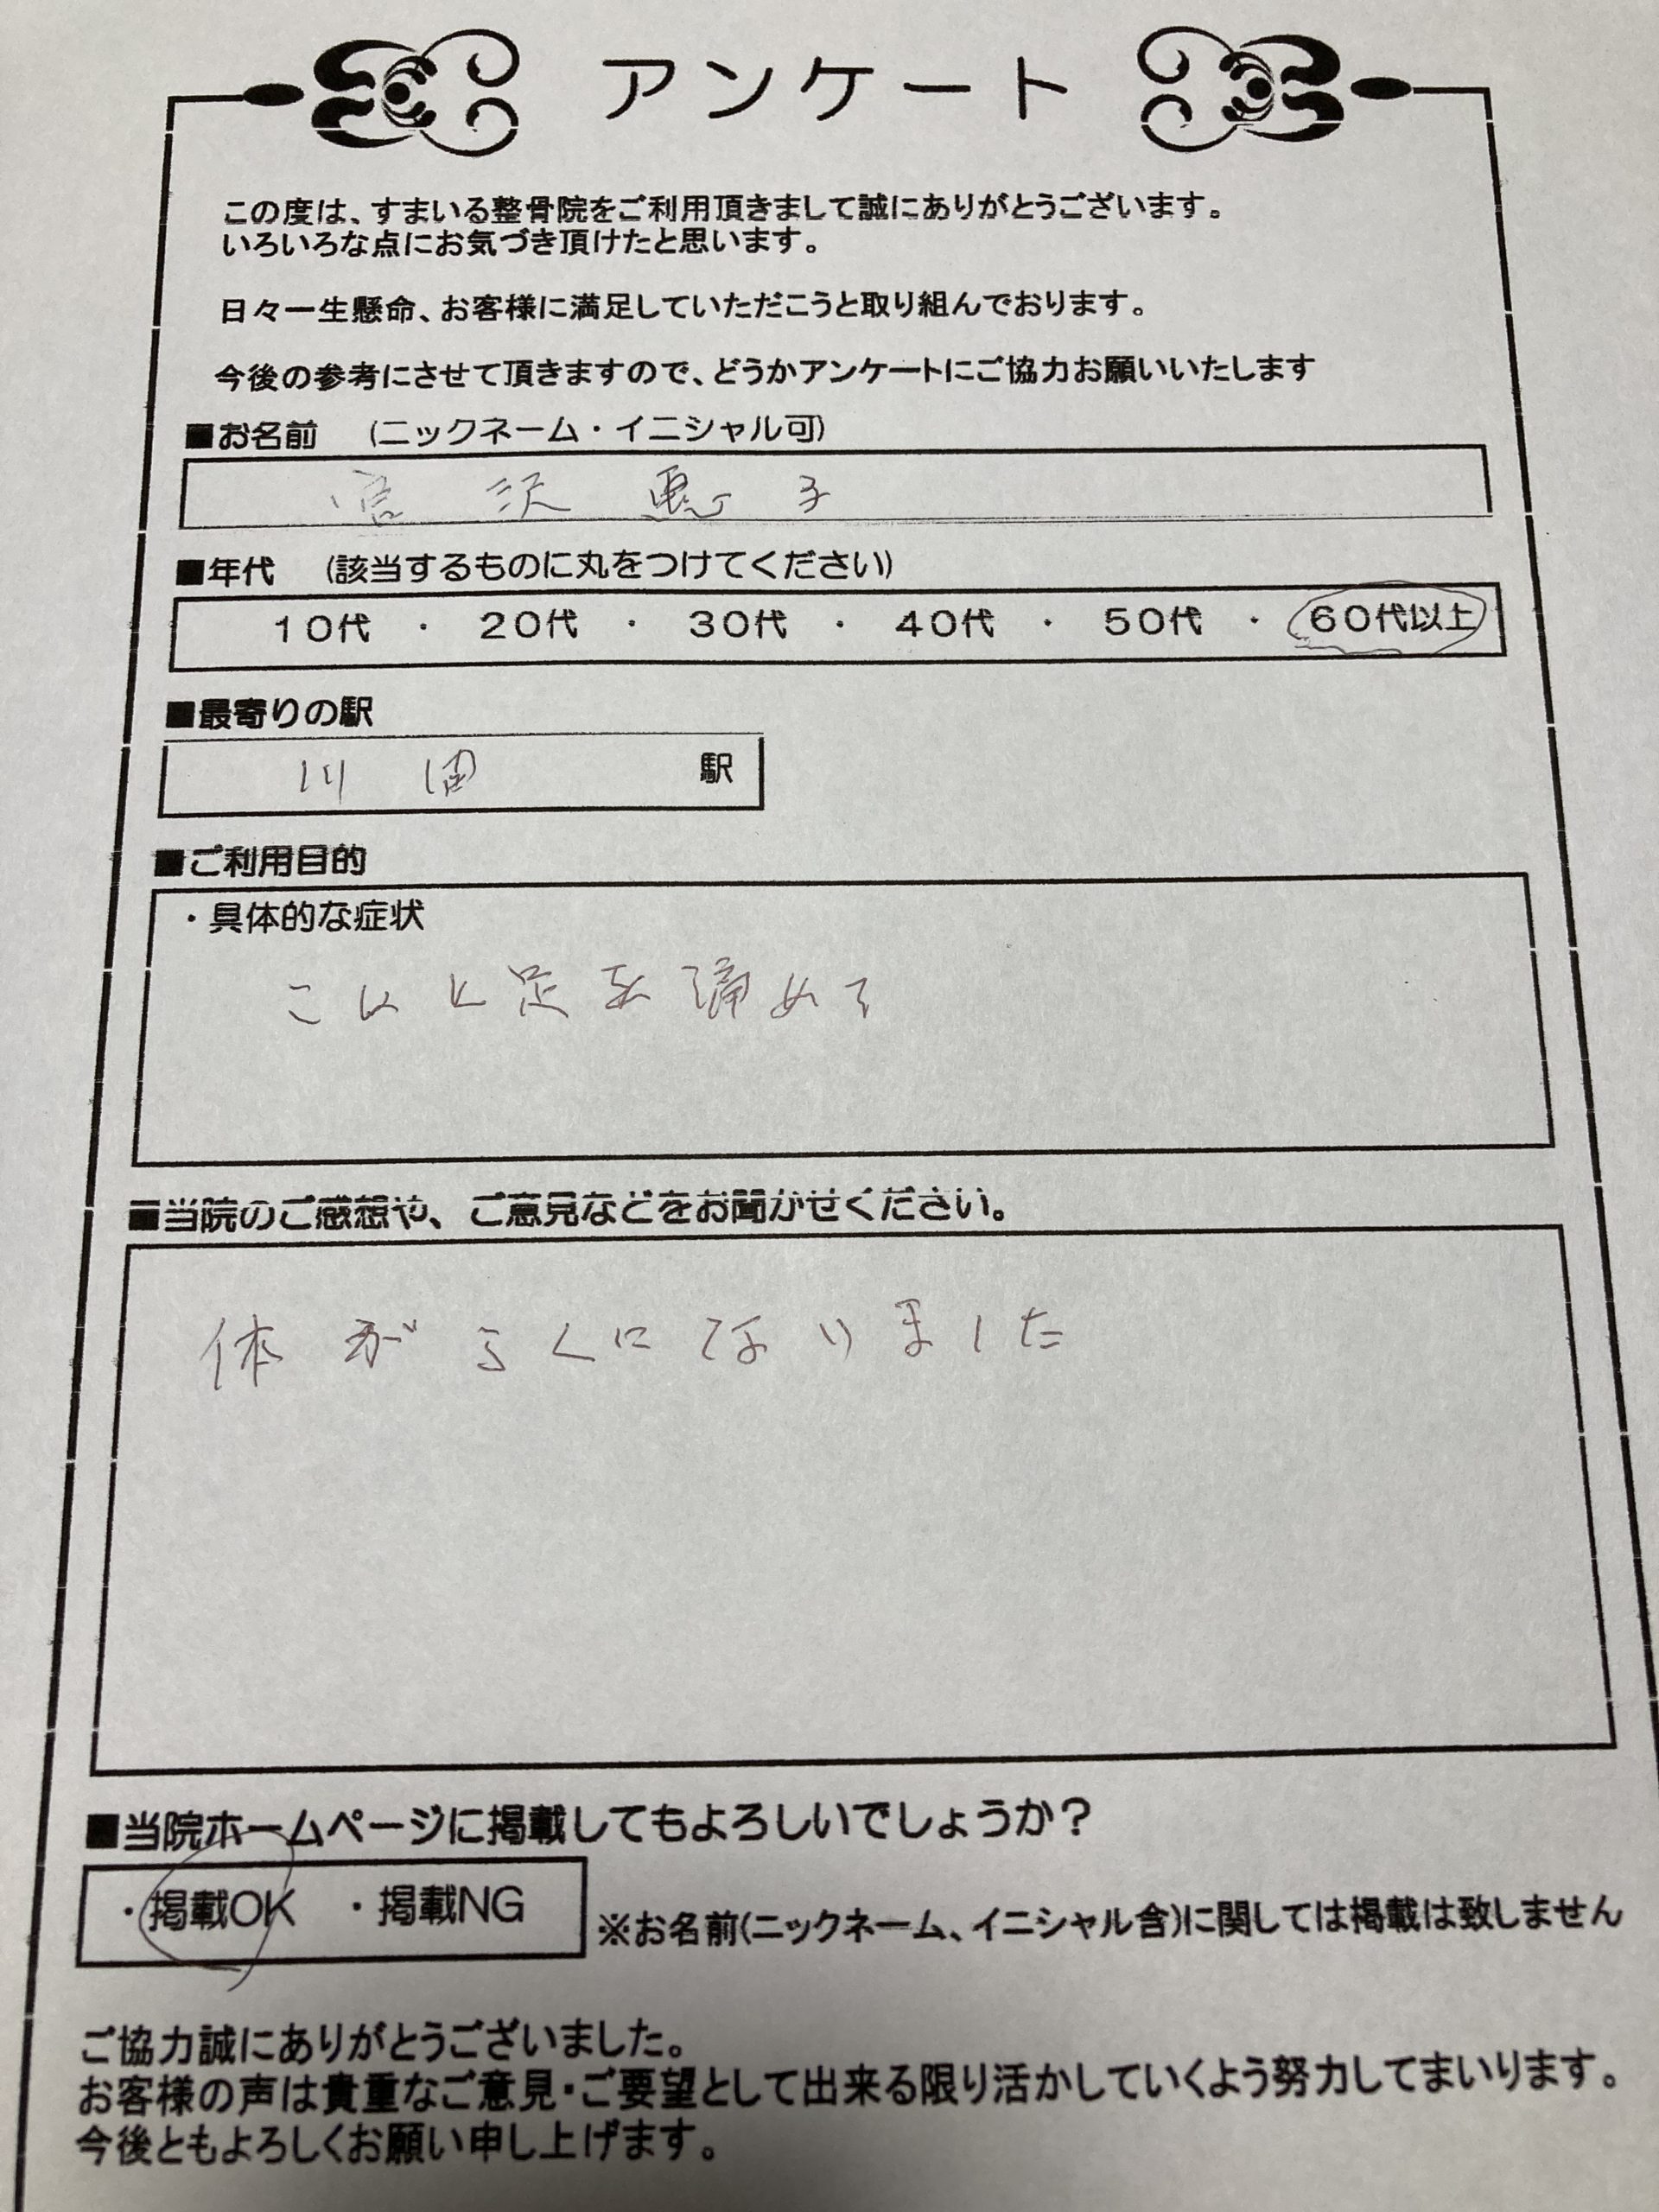 アンケート
この度は、すまいる整骨院をご利用頂きまして誠にありがとうございます。
いろいろな点にお気づき頂けたと思います。
日々一生懸命、お客様に満足していただこうと取り組んでおります。
今後の参考にさせて頂きますので、どうかアンケートにご協力お願いいたします
■お名前 (ニックネーム・イニシャル可)
宮沢恵子
■年代 (該当するものに丸をつけてください)
10代 ・ 20代 ・ 30代 ・ 40代 ・ 50代 ・ 60代以上
■最寄りの駅
川 駅
■ご利用目的
・具体的な症状
こしと足を めて
■当院のご感想や、ご意見などをお聞かせください。
体がらくになりました
■当院ホームページに掲載してもよろしいでしょうか？
・掲載OK ・掲載NG ※お名前(ニックネーム、イニシャル含)に関しては掲載は致しません
ご協力誠にありがとうございました。
お客様の声は貴重なご意見・ご要望として出来る限り活かしていくよう努力してまいります。
今後ともよろしくお願い申し上げます。